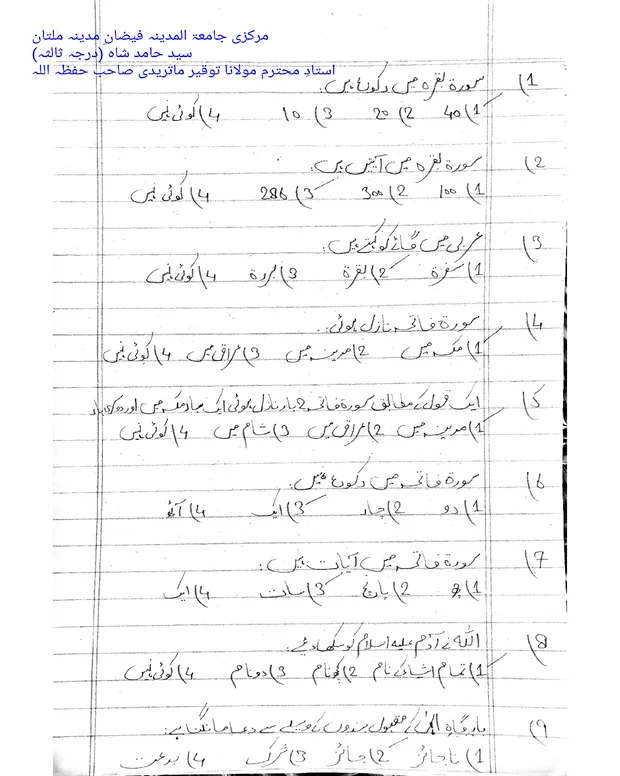 مرکزی جامعۃ المدینہ فیضان مدینہ ملتان
سید حامد شاہ (درجہ ثالثہ)
استادِ محترم مولانا توقیر ماتریدی صاحب حفظہ اللہ
1) سورۃ بقرہ میں رکوع ہیں:
1) 40 2) 20 3) 10 4) کوئی نہیں
2) سورۃ بقرہ میں آیتیں ہیں:
1) 100 2) 300 3) 286 4) کوئی نہیں
3) عربی میں گائے کو کہتے ہیں:
1) سفرۃ 2) بقرۃ 3) بردۃ 4) کوئی نہیں
4) سورۃ فاتحہ نازل ہوئی:
1) مکہ میں 2) مدینہ میں 3) عراق میں 4) کوئی نہیں
5) ایک قول کے مطابق سورۃ فاتحہ 2 بار نازل ہوئی ایک بار مکہ میں اور دوسری بار
1) مدینہ میں 2) عراق میں 3) شام میں 4) کوئی نہیں
6) سورۃ فاتحہ میں رکوع ہیں:
1) دو 2) چار 3) ایک 4) آٹھ
7) سورۃ فاتحہ میں آیات ہیں:
1) چھ 2) پانچ 3) سات 4) ایک
8) اللہ نے آدم علیہ اسلام کو سکھا دئیے:
1) تمام اشیاء کے نام 2) کچھ نام 3) دو نام 4) کوئی نہیں
9) بارگاہِ الٰہی کے مقبول بندوں کے وسیلے سے دعا مانگنا ہے:
1) ناجائز 2) جائز 3) شرک 4) بدعت